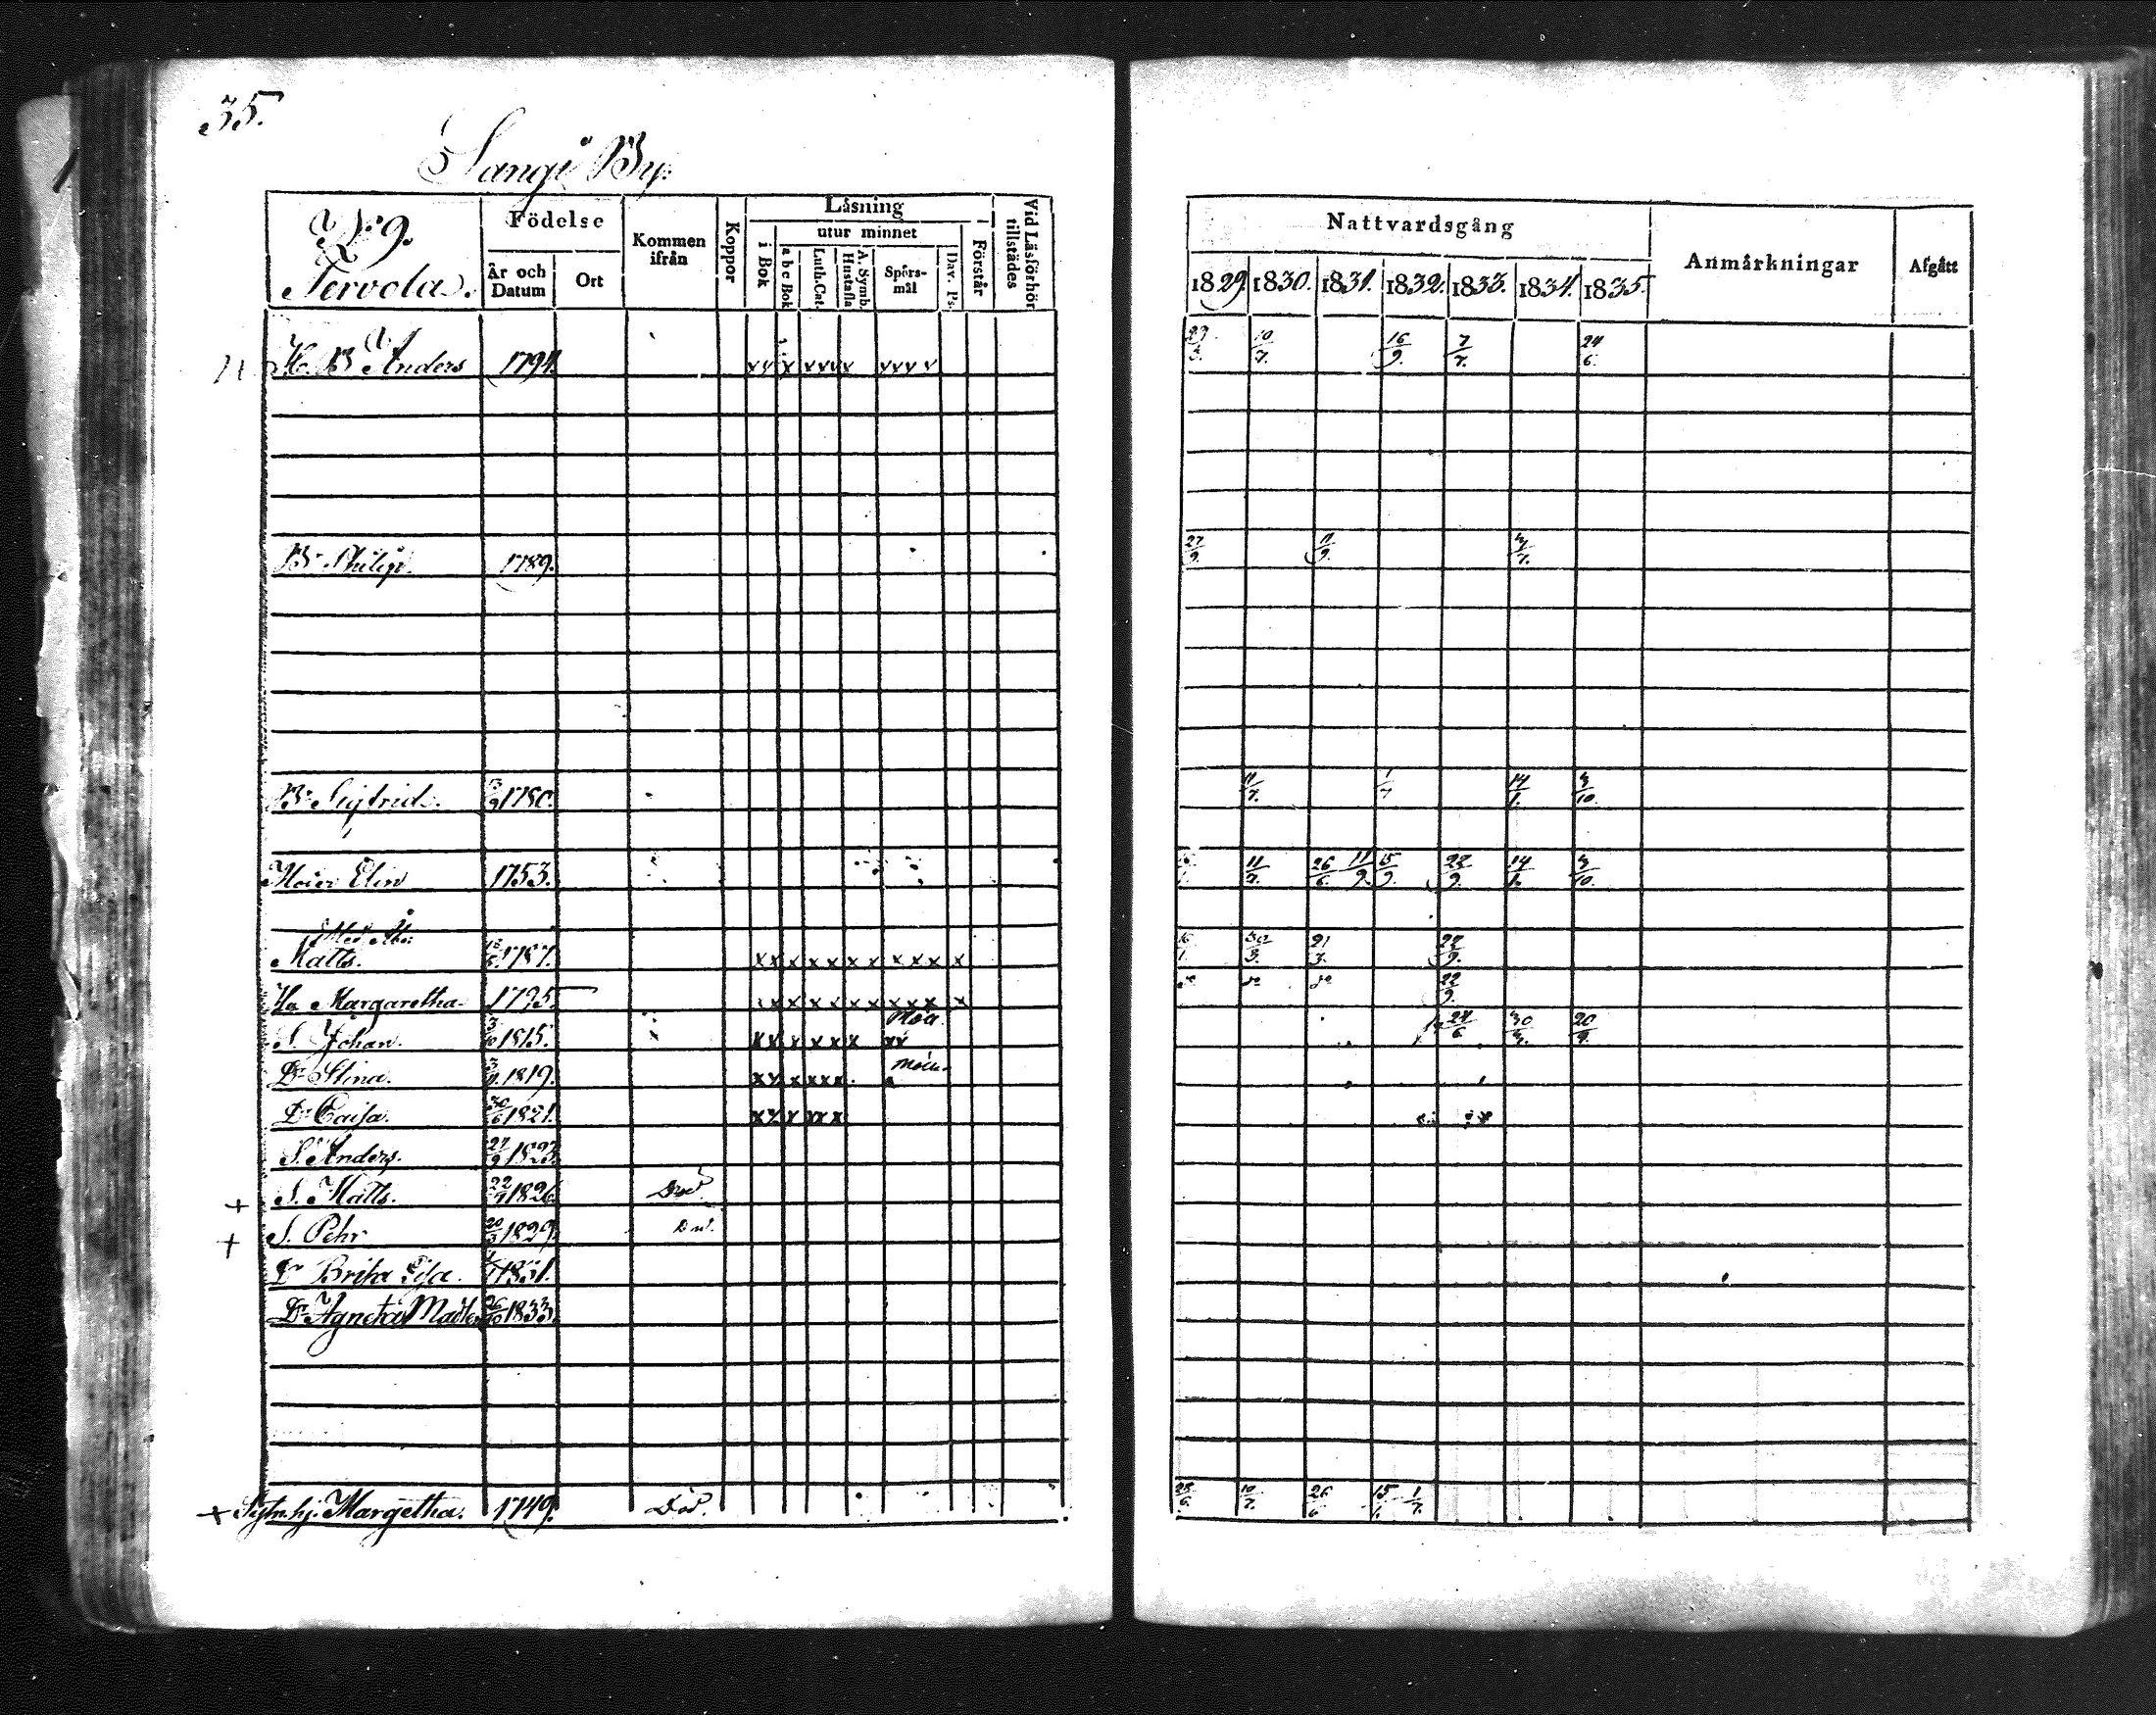 35.
Sangi By.
N:o 9.
Tervola.
Födelse
År och Datum
Ort
Kommen ifrån
Koppor
Läsning
i Bok
utur minnet
a b c Bok
Luth. Cat.
A. Symb. Hustafla
Spörs-mål
Dav. Ps.
Förstår
Vid Läsförhör tillstädes
Nattvardsgång
1829. 1830. 1831. 1832. 1833. 1834. 1835.
Anmärkningar
Afgått
Anders 1794. xx x xxxx xxxx 10/7. 16/9. 7/7. 24/6.
Br Philip. 1789. 27/9. 11/9. 4/7.
Br Sigfrid. 1780. 11/7. 14/1. 4/10.
Moder Elin 1753. 11/7. 26/6 11/9. 15/9. 22/9. 14/1. 4/10.
Matts. 1787. xxx x x x x x x x x 30/3. 21/3. 22/9.
Hu Margaretha 1795 x x x x x x x x x x 22/9.
S. Johan. 1815. xx x x x x xx 24/6 30/3. 20/9.
Dr Stina. 1819. xx x xxx
Dr Caisa. 30/6 1821. xx x xxx
S. Anders. 27/9 1823.
+ S. Matts. 1826. Död.
+ S. Pehr 20/3 1829. Död.
Dr Brita Lisa. 1831.
Dr Agneta Madlen 26/10 1833.
+ Margetha. 1749. Död. 28/6. 10/7. 26/6 15/1. 1/7.